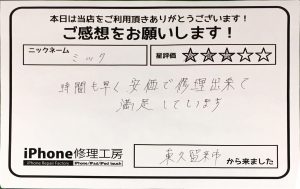 本日は当店をご利用頂きありがとうございます!
ご感想をお願いします!
ニックネーム
ミック
星評価 ★★★☆☆
時間も早く安価で修理出来て
満足しています
iPhone修理工房
iPhone Repair Factory iPhone/iPad/iPod touch
東久留米市 から来ました